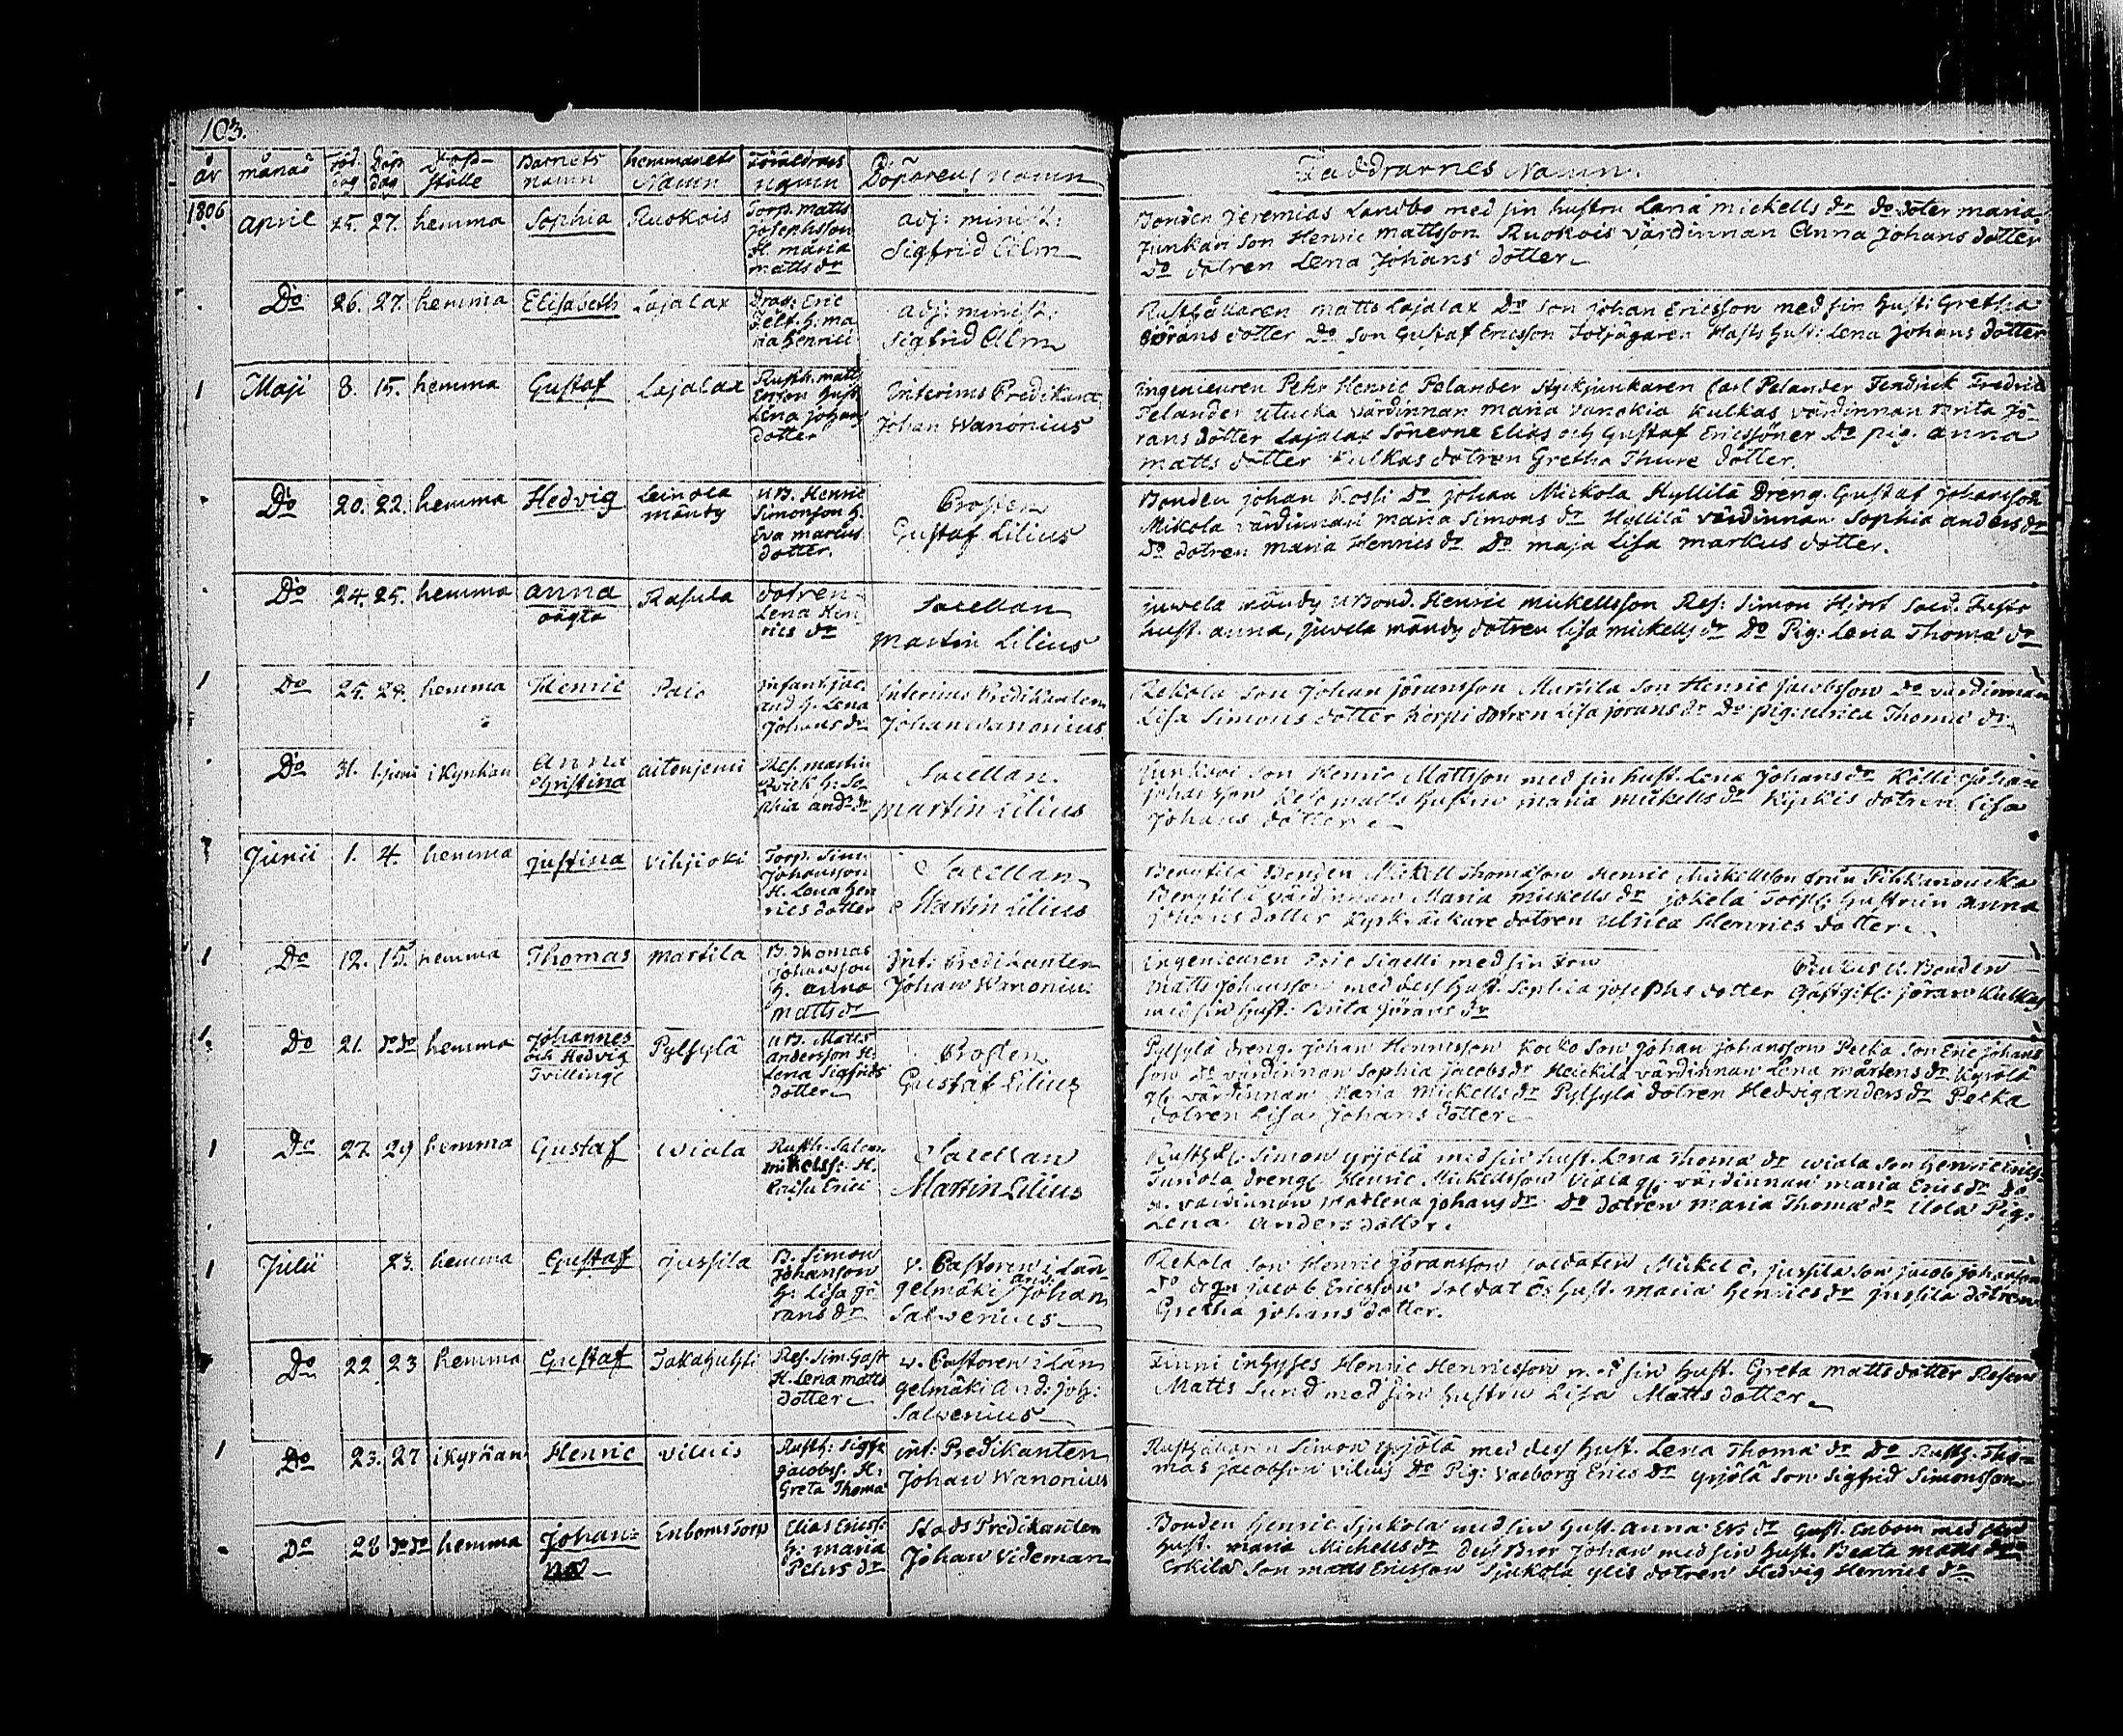 103.
år månad Föd. dag Döp dag Döp- ställe Barnets namn hemmanets Namn Föräldrars namn Döparens namn Faddrarnes Namn.
1806 April 25. 27. hemma Sophia Ruokois Torp. Matts Josephsson H. maria matts dr
adj: minist: Sigfrid Alm
Bonden Jeremias Landbo med sin hustru Lena mickells dr do doter maria
Junkari Son Henric mattsson Ruokois värdinnan Anna Johans dotter
Do dotren Lena Johans dotter
Do 26. 27. hemma Elisabeth Lajalax Drag: Eric Fält. h: maria henrici
adj: minist: Sigfrid Alm
Rusthållaren matts Lajalax Do son johan Ericsson med sin hust: Gretha
Görans dotter Do son Gustaf Ericsson hust: Lena Johans dotter
1 Maji 8. 15. hemma Gustaf Lajalax Rusth. matts Ersson hust Lena johans dotter
Interims Predikant Johan Wanonius
Ingenieuren Petr Henric Pelander Carl Pelander Fendrick Fredric
Pelander utucka värdinnan maria vanokia Kulkas värdinnan Brita Jö-
rans dotter Lajalax Sönerne Elias och Gustaf Ericssöner Do pig. anna
matts dotter Kulkas dotren Gretha Thure dotter.
Do 20. 22. hemma Hedvig Leinola mändy UB. Henric Simonsson h. Eva marcus dotter.
Prosten Gustaf Lilius
Bonden johan Kossi Do johan Mickola Hyllilä Dreng. Gustaf johansson
Mikola värdinnan maria Simons dr Hyllilä värdinnan Sophia anders dr
Do dotren maria Henrics dr Do maja Lisa markus dotter.
Do 24. 25. hemma anna oägta Rasula dotren Lena Henrics dr
Sacellan Martin Lilius
juvela mändy UBond. Henric mickellsson Res: Simon Hjort
hust. anna, juvela mändy dotren lisa mickells dr Do Pig: Lena Thoma dr
1 Do 25. 29. hemma Henric Palo Infant. jac. and h. Lena Johans dr
Interims Predikanten Johan Wanonius
Rekola Son Johan Jöransson Martila Son Henric Jacobsson Do värdinnan
Lisa Simons dotter Korpi dotren Lisa jörans dr Do pig: ulrica Thomæ dr
Do 31. 1. junii i Kyrkan Anna Christina aitenjemi Res. martin Qvick h: Sophia and: dr
Sacellan. Martin Lilius
Junkari son Henric Mattsson med sin hust. Lena Johans dr Källi Johan
Johansson matts hustru maria mickells dr Kyrkis dotren Lisa
Johans dotter
Junii 1. 4. hemma Justina vihjioki Torp. Sim: Johansson H. Lena Henrics dotter
Sacellan Martin Lilius
Bergtilä Bonden Mickell Thomasson Henric Mickellson
Bergtilä värdinnan Maria mickells dr jokela Torp: Hustrun anna
johans dotter dotren ulrica Henrics dotter
1 Do 12. 15. hemma Thomas martila B. Thomas Johansson h. anna matts dr
Int: Predikanten Johan Wanonius
Ingenieuren Eric Sigelli med sin Fru Bonden
Matts Johansson med dess hust. Sophia josephs dotter Gästgif: jöran Kulkas
med sin hust. Brita Jörans dr
1. Do 21. do do hemma Johannes och Hedvig Tvilling: Pylsylä UB. Matts andersson H: Lena Sigfrids dotter
Prosten Gustaf Lilius
Pylsylä dreng. Johan Henricsson Kocko Son Johan Johansson Pecka Son Eric johans
son do värdinnan Sophia jacobs dr Heickilä värdinnan Lena mårtens dr Kyrölä
gl: värdinnan Maria Mickells dr Pylsylä dotren Hedvig anders dr Pecka
dotren Lisa Johans dotter
1 Do 27. 29 hemma Gustaf wiala Rusth. Salom mikelss: H. Kaisa Erici
Sacellan Martin Lilius
Rusth: Simon yrjölä med sin hust. Lena Thoma dr wiala Son Henric Erics-
Turiola dreng: Henric Mickelsson Viala gl: värdinnan maria Erics dr Do
u. värdinnan Madlena johans dr Do dotren maria Thoma dr Uola Pig:
Lena Anders dotter.
1 Julii 23. hemma Gustaf jussila B. Simon Johansson h: Lisa Görans dr
v. Pastoren i Längelmäki And: Johan Salvenius
Rekola Son Henric Jöransson Soldaten Mickel Ö. jussila son jacob johansson
Do drgn jacob Ericsson Soldat Ö: hust. maria Henrics dr jussila dotren
Gretha johans dotter.
Do 22. 23 hemma Gustaf Takahuhti Res. Sim: Gast H. Lena matts dotter
v. Pastoren i Längelmäki And: joh: Salvenius
Finni inhyses Henric Henricsson m. sin hust. Greta matts dotter Reserv
Matts Sund med sin hustru Lisa Matts dotter
1 Do 23. 27 i Kyrkan Henric viluis Rusth: Sigfr jacobs: H: Greta Thoma
int: Predikanten Johan Wanonius
Rusthållaren Simon yrjölä med dess hust. Lena Thoma dr Do Rusth. Tho-
mas jacobsson viluis Do Pig: valborg Erics dr yrjölä son Sigfrid Simonsson
Do 28 do do hemma Johanna Enboms Torp Elias Ericss: h: maria Pehrs dr
Stads Predikanten Johan Videman
Bonden Henric Sjukola med sin hust. anna Ers dr Gust. Enbom med sin
hust. maria Michells dr Dess Bror Johan med sin hust. Beata matts dr
Erkilä Son matts Ericsson Sjukola ylis dotren Hedvig Henrics dr